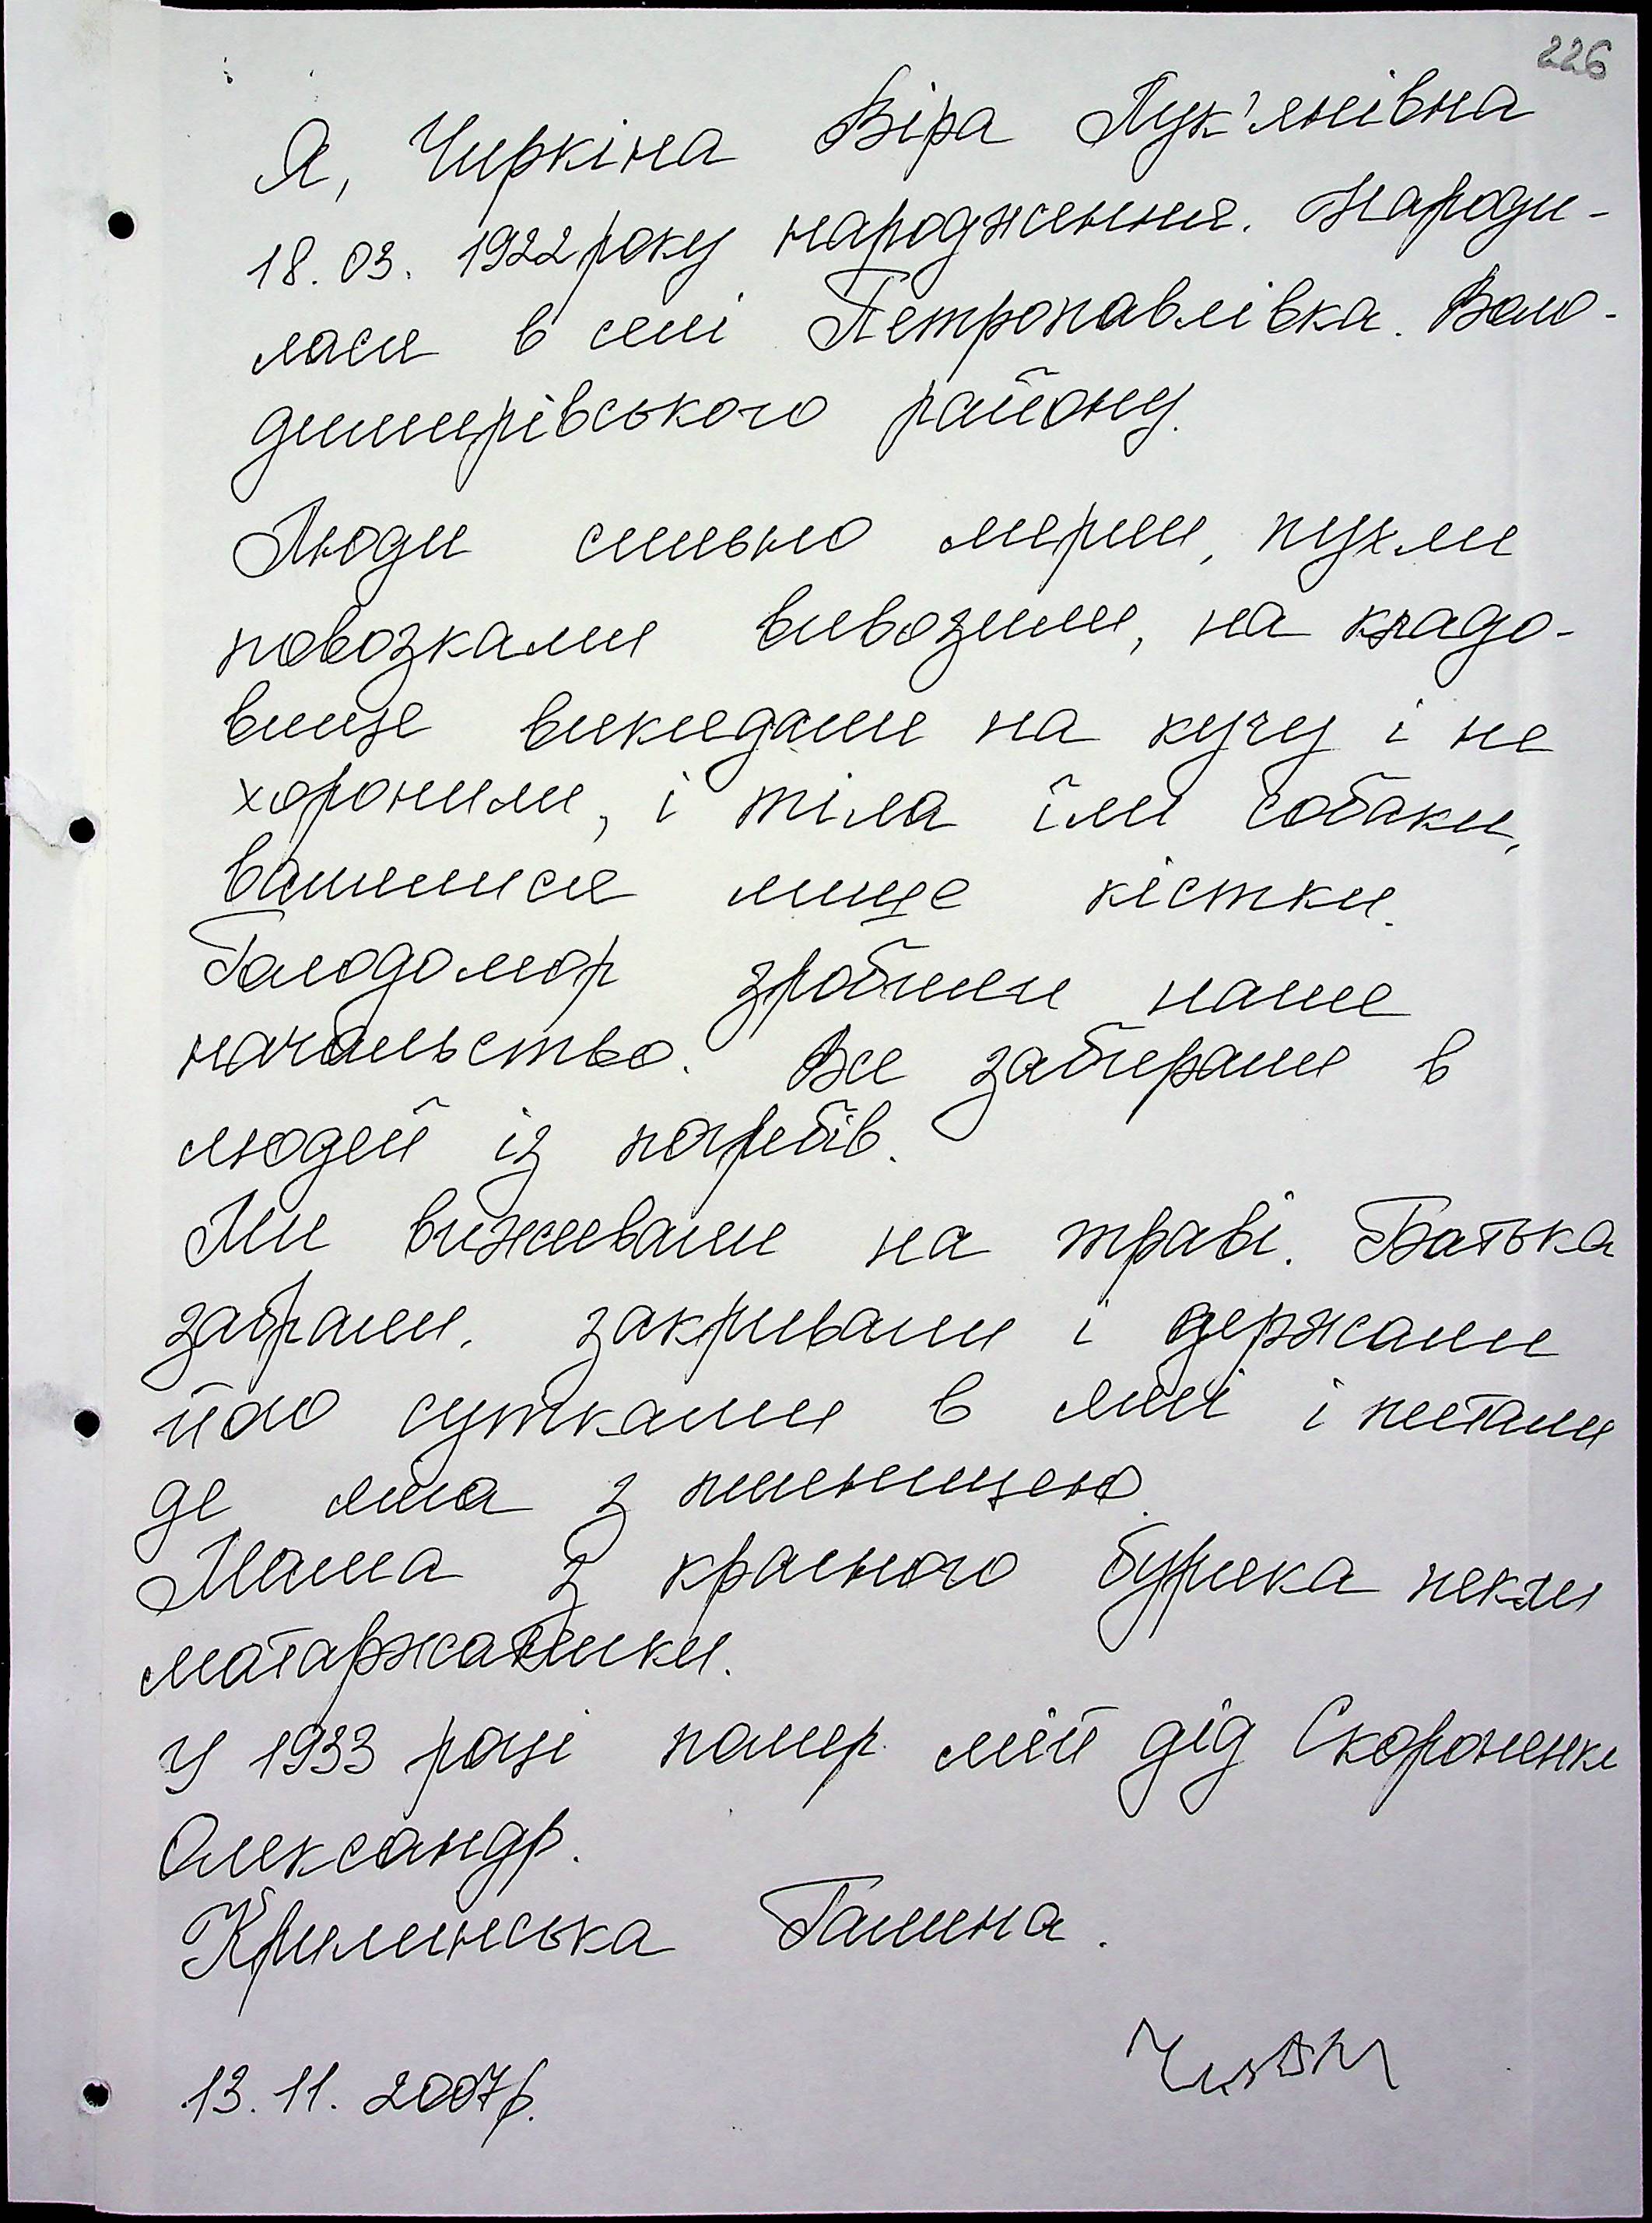 226
Я, Чиркіна Віра Лук'янівна
18.03.1922 року народження. Народи-
лася в селі Петропавлівка. Воло-
димирівського району.
Люди сильно мерли, пухли
повозками вивозили, на кладо-
вище викидали на кучу і не
хоронили, і тіла їли собаки,
валялися лише кістки.
Голодомор зробили наше
начальство. Все забирали в
людей із погребів.
Ми виживали на траві. Батька
забрали. закривали і держали
його сутками в ямі і питали
де яма з пшеницею.
Мама з красного буряка пекли
матаржаники.
У 1933 році помер мій дід Скороненко
Олександр.
Крилинська Галина.
13.11.2007р.